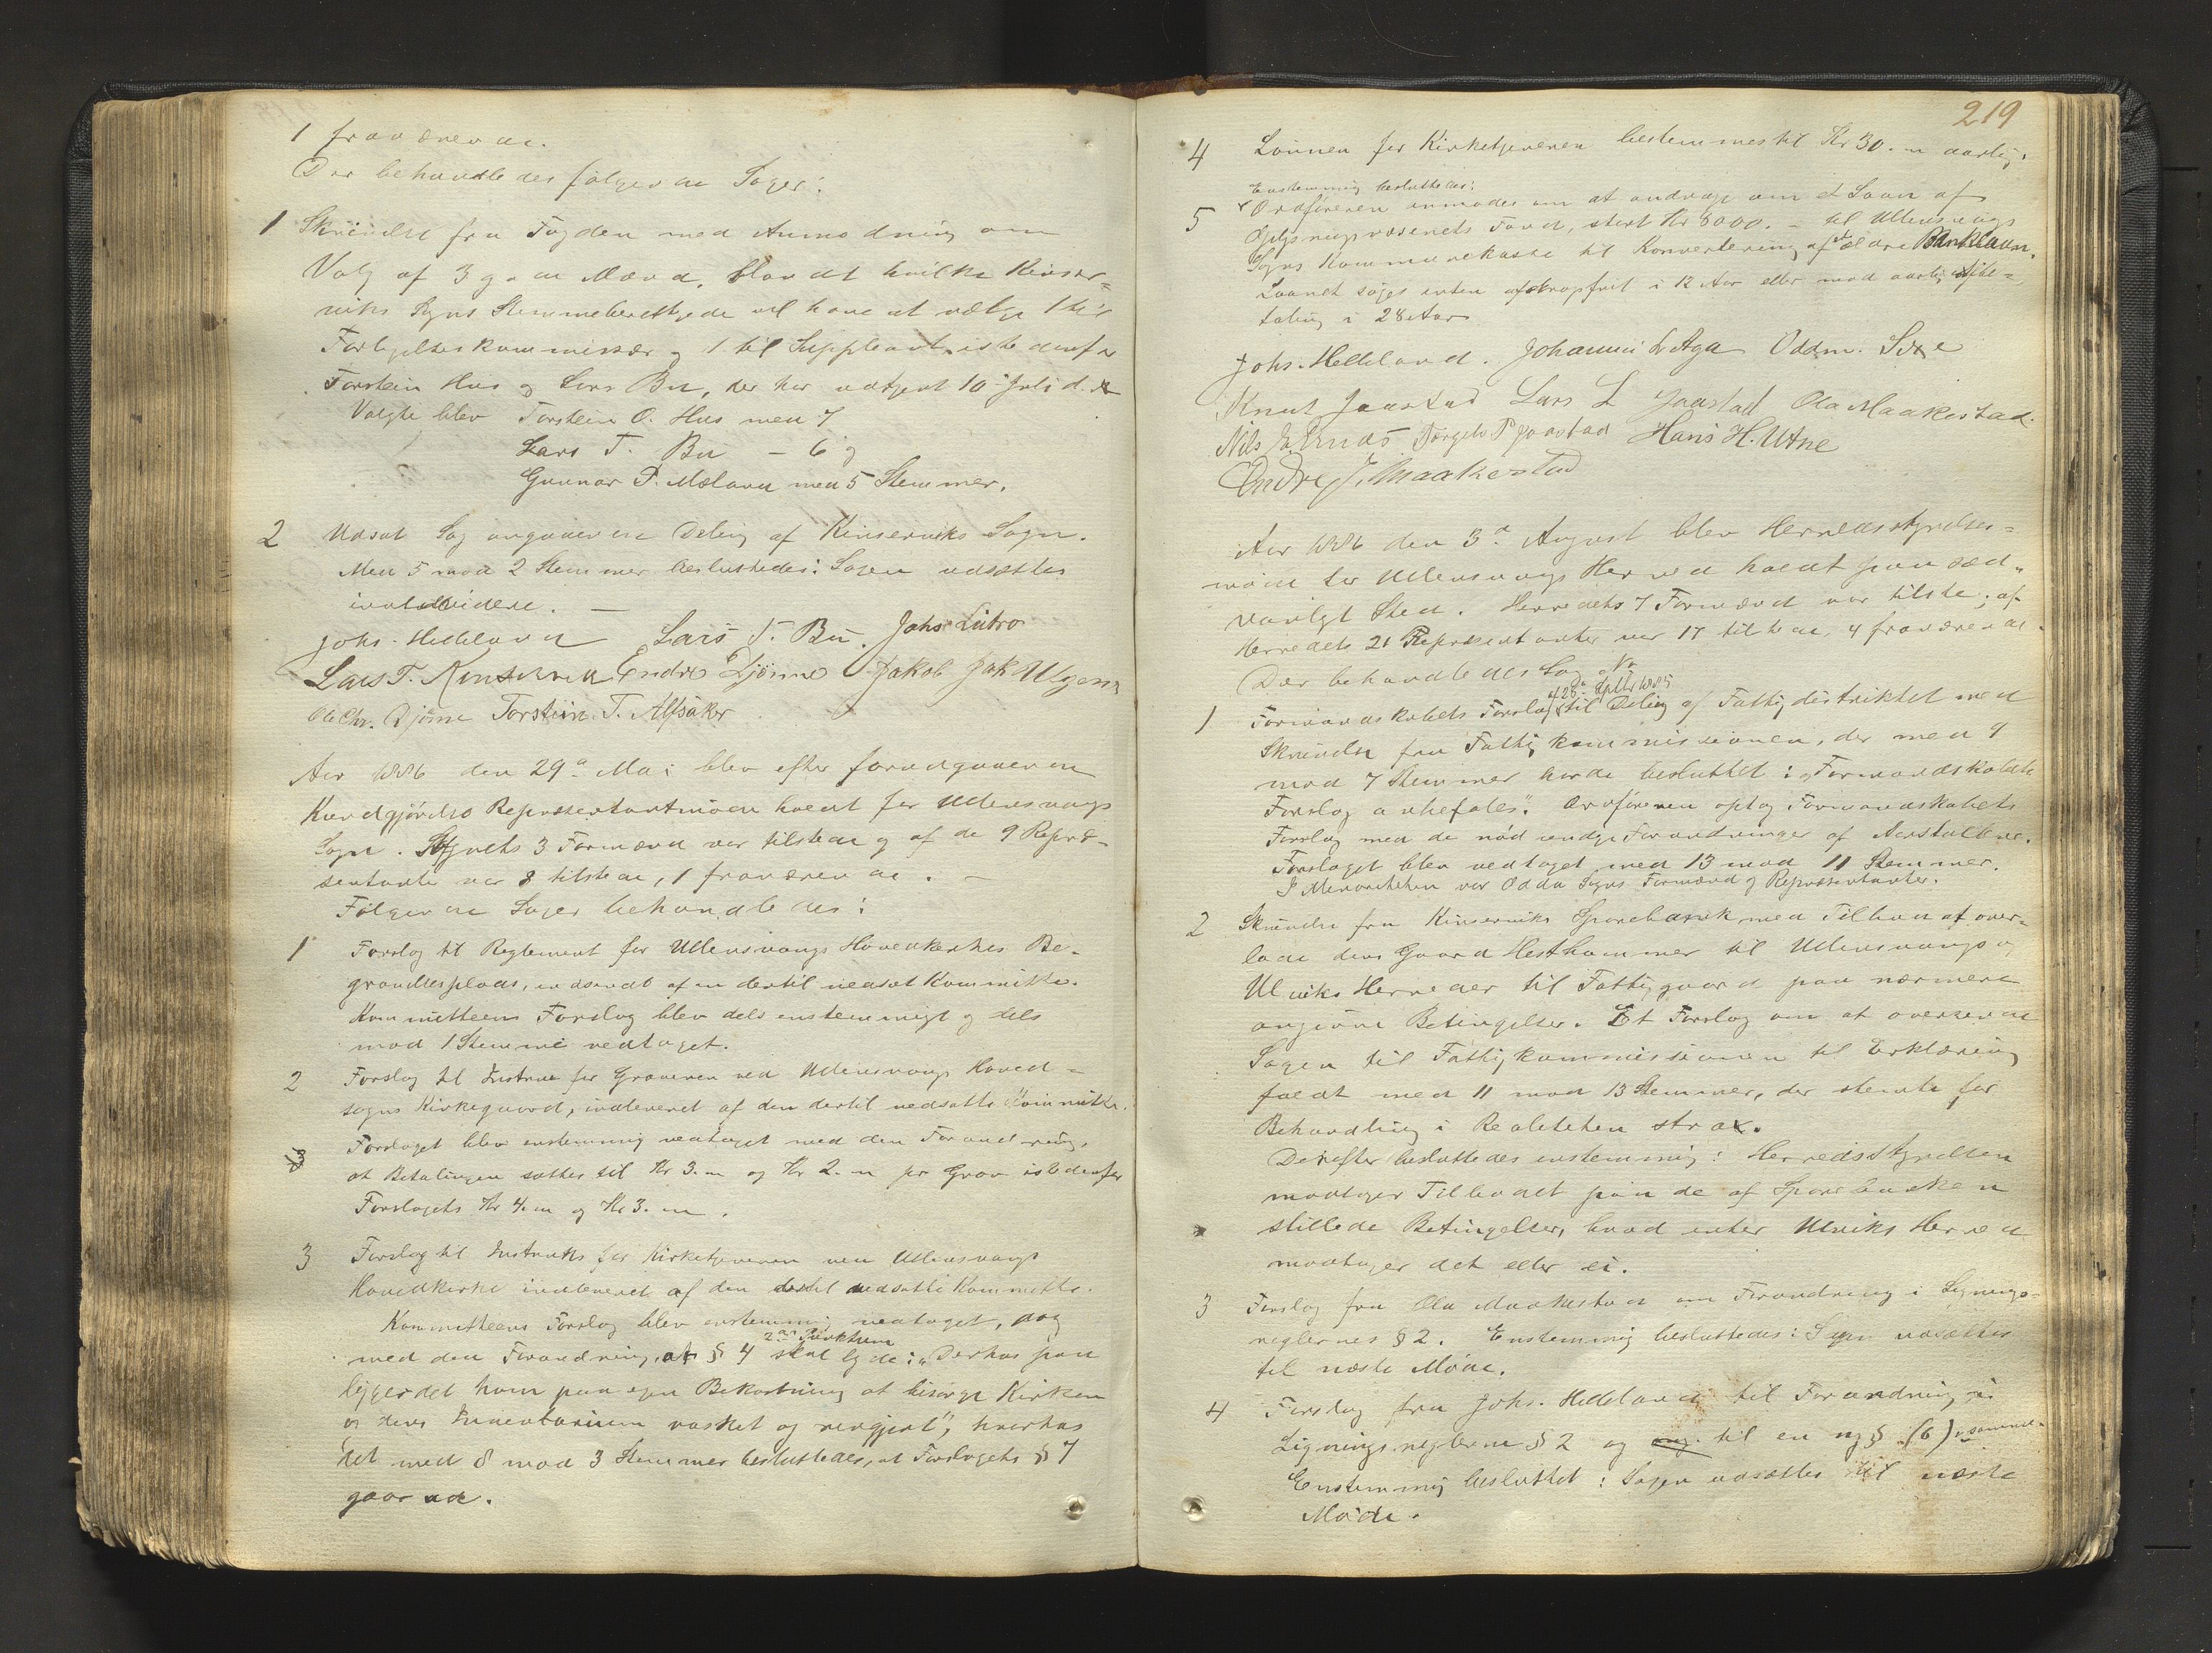 1 fraværende.
Der behandledes følgende Sager:
1 Skrivelse fra Fogden med Anmodning om
Valg af 3 gode Mænd, blandt hvilke Kinser-
viks Sogns Stemmeberettigede vil have at vælge 1 til
Forligelseskommissær og 1 til Suppleant istedenfor
Torstein Hus og Lars Bu, der har udtjent 10 Juli d. A.
Valgte blev Torstein O. Hus med 7
Lars T. Bu - 6 og
Gunnar P. Mæland med 5 Stemmer.
2 Udsat Sag angaaende Deling af Kinserviks Sogn.
Med 5 mod 2 Stemmer besluttedes: Sagen udsættes
indtilvidere. —
Johs. Helleland Lars T. Bu. Johs Lutro
Lars T. Kinservik Endre Djønne Jakob Jak Ulgenes
Ole Chr. Djønne Torstein T. Alsaker
Aar 1886 den 29de Mai blev efter foregaaende
Kundgjørelse Repræsentantmøde holdt for Ullensvangs
Sogn. Sognets 3 Formænd var tilstede og af de 9 Repræ-
sentanter var 8 tilstede, 1 fraværende. —
Følgende Sager behandledes:
1 Forslag til Reglement for Ullensvangs Hovedkirkes Be-
gravelsesplads, indsendt af en dertil nedsat Kommitte.
Kommitteens Forslag blev dels enstemmigt og dels
mod 1 Stemme vedtaget.
2 Forslag til Instrux for Graveren ved Ullensvangs Hoved-
sogns Kirkegaard, indleveret af den dertil nedsatte Kommitte.
Forslaget blev enstemmig vedtaget med den Forandring,
3
at Betalingen sættes til Kr 3.00 og Kr 2.00 pr Grav istedenfor
Forslagets Kr 4.00 og Kr 3.00.
3 Forslag til Instruks for Kirketjeneren ved Ullensvangs
Hovedkirke indleveret af den dertil nedsatte Kommitte.
Kommitteens Forslag blev enstemmig vedtaget, dog
2det Punktum
med den Forandring, at § 4 skal lyde: "Derhos paa
ligger det ham paa egen Bekostning at besørge Kirken
og dens Inventarium vasket og rengjort", hvorhos
det med 8 mod 3 Stemmer besluttedes, at Forslagets § 7
gaar ud.
219
4 Lønnen for Kirketjeneren bestemmes til Kr 30.00 aarlig.
Enstemmig besluttedes:
5 Ordføreren anmodes om at andrage om et Laan af
Oplysningsvæsenets Fond, stort Kr 8000. — til Ullensvangs
Sogns Kommunekasse til Konvertering af et ældre Banklaan.
Laanet søges enten afdragsfrit i 12 Aar eller mod aarlig Afbe-
taling i 28 Aar
Johs. Helleland. Johannes L Aga Oddm. Sexe
Knut Jaastad Lars L Jaastad Ola Maakestad.
Nils Torgils P Jaastad Hans H. Utne
Endre J. Maakestad
Aar 1886 den 3die August blev Herredsstyrelses-
møde for Ullensvangs Herred holdt paa sæd-
vanligt Sted. Herredets 7 Formænd var tilstede; af
Herredets 21 Repræsentanter var 17 tilstede, 4 fraværende.
Der behandledes Sag No
af 28de Septbr 1885
1 Formandskabets Forslag til Deling af Fattigdistriktet med
Skrivelse fra Fattigkommissionen, der med 9
mod 7 Stemmer havde besluttet: "Formandskabets
Forslag anbefales." Ordføreren optog Formandskabets
Forslag med de nødvendige Forandringer af Aarstallene.
Forslaget blev vedtaget med 13 mod 11 Stemmer.
I Minoriteten var Odda Sogns Formænd og Repræsentanter.
2 Skrivelse fra Kinserviks Sparebank med Tilbud at over-
lade dens Gaard Hesthammer til Ullensvangs og
Ulviks Herreder til Fattiggaard paa nærmere
angivne Betingelser. Et Forslag om at oversende
Sagen til Fattigkommissionen til Erklæring
faldt med 11 mod 13 Stemmer, der stemte for
Behandling i Realiteten strax.
Derefter besluttedes enstemmig: Herredsstyrelsen
modtager Tilbudet paa de af Sparebanken
stillede Betingelser, hvad enten Ulviks Herred
modtager det eller ei.
3 Forslag fra Ola Maakestad om Forandring i Lignings-
reglernes § 2. Enstemmig besluttedes: Sagen udsættes
til næste Møde.
4 Forslag fra Johs. Helleland til Forandring i
Ligningsreglerne § 2 og til en ny § (6) i samme.
Enstemmig besluttet: Sagen udsættes til næste
Møde.